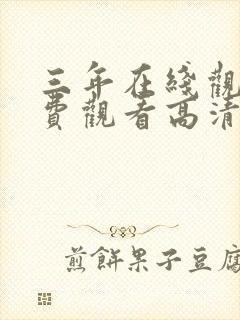 三年在綫觀
費觀看高清
煎餅果子豆腐